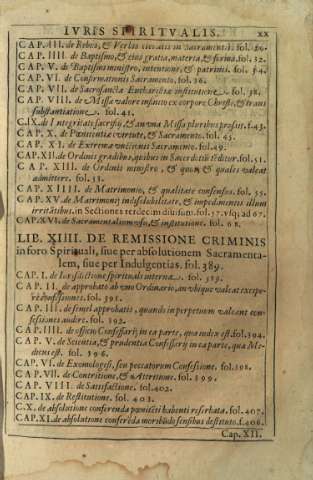 IVRIS SPIRITVALIS. XX
CAP. III. de Rebus, & Verbis in Sacramentis. fol. 30.
CAP. IIII. de Baptismo, & eius gratia, materia, & forma. fol. 32.
CAP. V. de Baptismi ministro, intentione, & patrinis. fol. 34.
CAP. VI. de Confirmationis Sacramento. fol. 36.
CAP. VII. de Sacrosancta Eucharistiæ institutione. fol. 38.
CAP. VIII. de Missæ valore infinito ex corpore Christi, & transubstantiatione. fol. 41.
C. IX. de Integritate sacrificij, & an vna Missa pluribus prosit. f. 43.
CAP. X. de Pœnitentiæ virtute, & Sacramento. fol. 45.
CAP. XI. de Extremæ vnctionis Sacramento. fol. 49.
CAP. XII. de Ordinis gradibus, quibus in Sacerdotiũ itur. fol. 51.
CAP. XIII. de Ordinis ministro, & quos & quales valeat
admittere. fol. 53.
CAP. XIIII. de Matrimonio, & qualitate consensus. fol. 55.
CAP. XV. de Matrimonij indissolubilitate, & impedimentis illum
irritãtibus, in Sectiones terdecim diuisum. fol. 57. vsq; ad 67.
CAP. XVI. de Sacramentalium vsu, & institutione. fol. 68.
LIB. XIIII. DE REMISSIONE CRIMINIS
in foro Spirituali, siue per absolutionem Sacramenta-
lem, siue per Indulgentias. fol. 389.
CAP. I. de Iurisdictione spirituali interna. fol. 389.
CAP. II. de approbato ab vno Ordinario, an vbique valeat excipere
confessiones. fol. 391.
CAP. III. de semel approbatis, quando in perpetuum valeant con-
fessiones audire. fol. 392.
CAP. IIII. de officio Confessarij in ea parte, qua iudex est. fol. 394.
CAP. V. de Scientia, & prudentia Confessarij in ea parte, qua Me-
dicus est. fol. 396.
CAP. VI. de Exomologesi, seu peccatorum Confessione. fol. 398.
CAP. VII. de Contritione, & Attritione. fol. 399.
CAP. VIII. de Satisfactione. fol. 402.
CAP. IX. de Restitutione. fol. 403.
C. X. de absolutione conferenda pœnitẽti habenti reseruata. fol. 407.
CAP. XI. de absolutione conferẽda moribũdo sensibus destituto. f. 408.
Cap. XII.